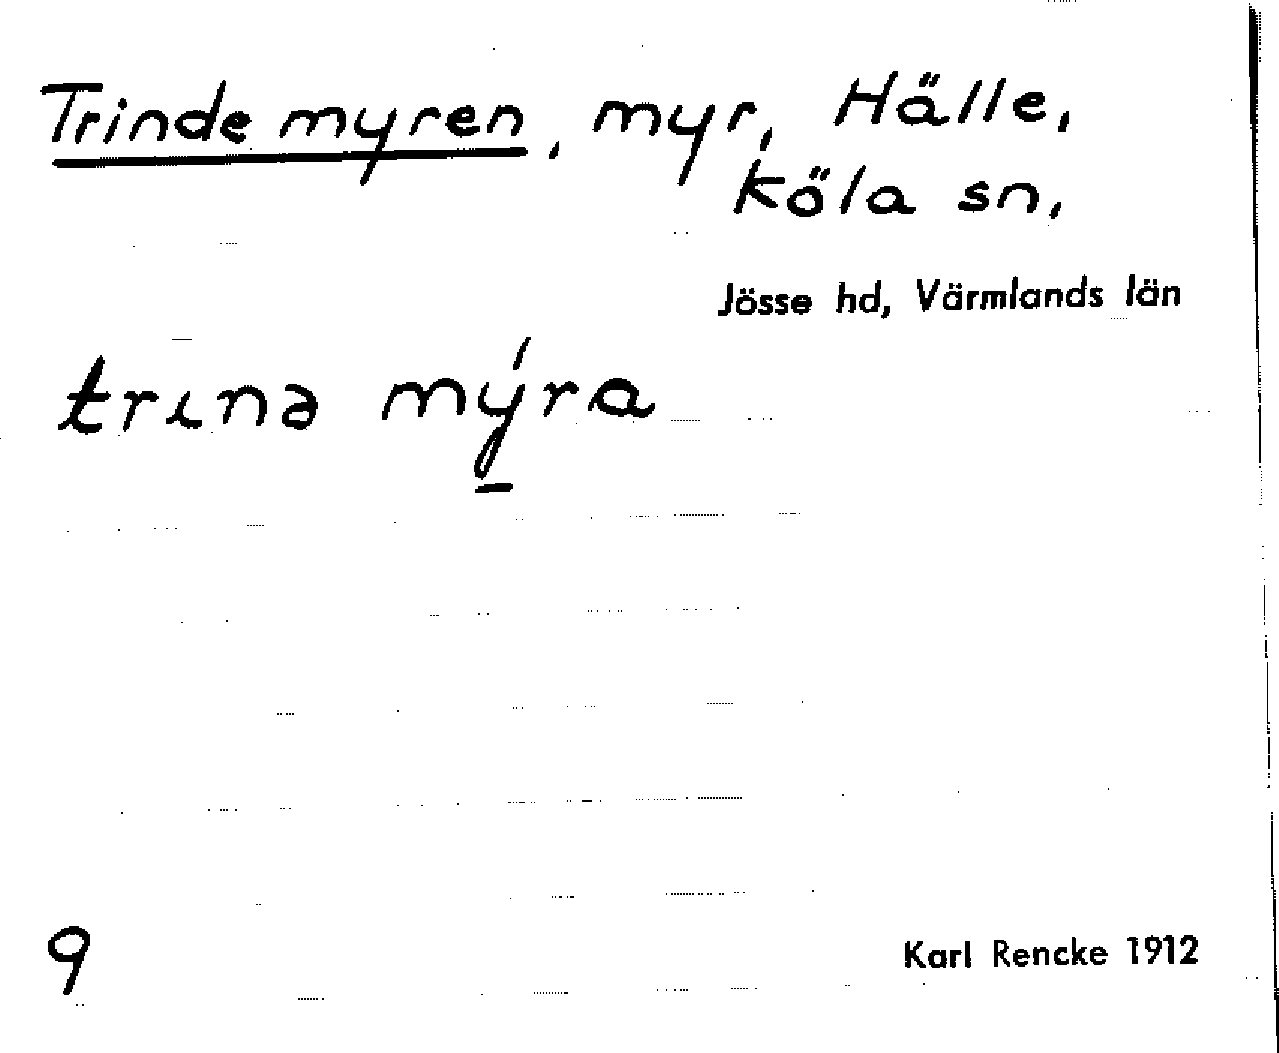 Trinde myren, myr, Hälle,
Köla sn,
Jösse hd, Värmlands län
trɩnə mýra
9
Karl Rencke 1912